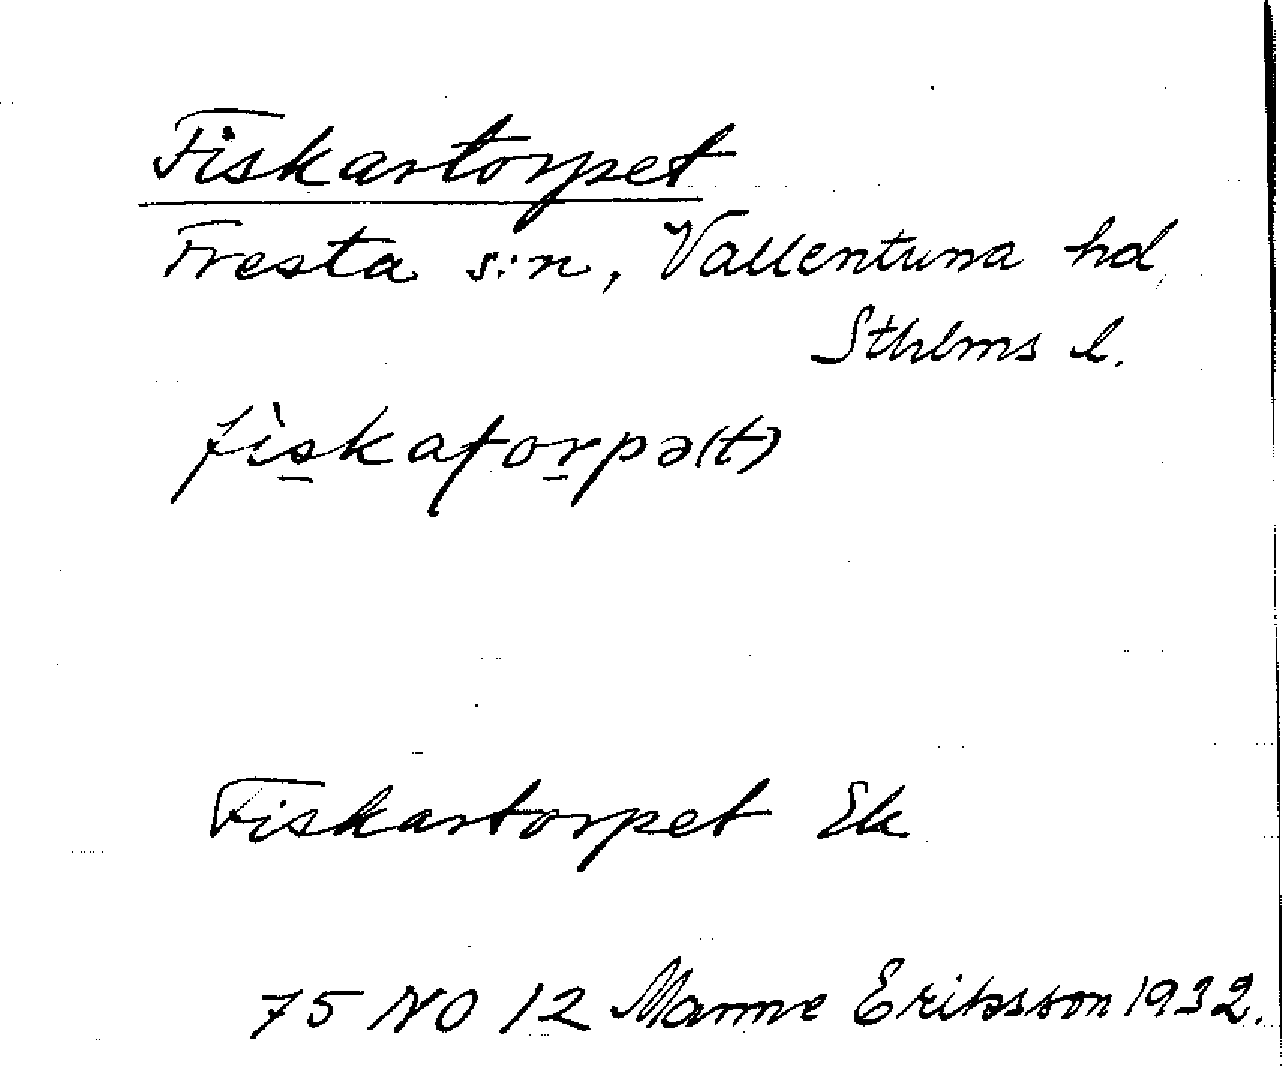 Fiskartorpet
Fresta s:n, Vallentuna hd,
Sthlms l.
fìskaƭorpə(t)
Fiskartorpet Ek
75 NO 12 Manne Eriksson 1932.